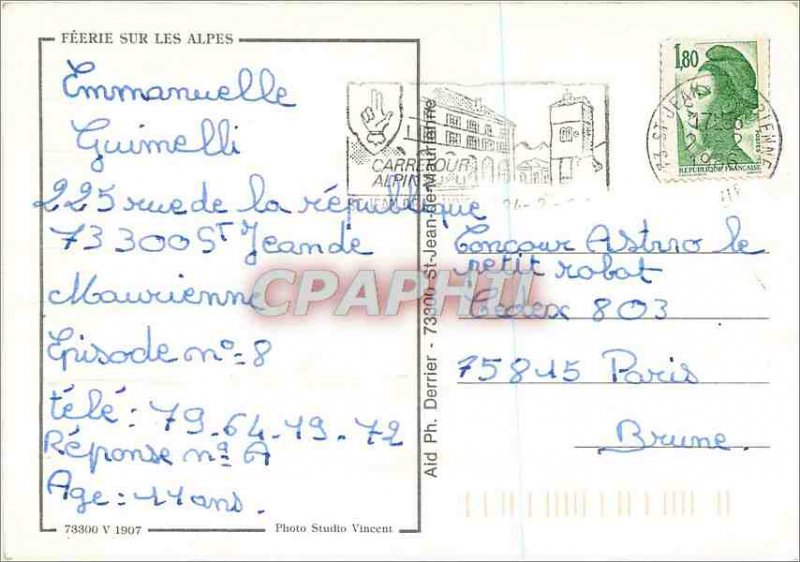 FÉERIE SUR LES ALPES
Emmanuelle
Guimelli
225 rue de la république
73300 St Jeande
Maurienne
Episode n°=8
télé: 79.64.19.72
Réponse n°A
Age: 11 ans.
73300 V 1907
Photo Studio Vincent
Aid Ph. Derrier - 73300 St-Jean-de-Maurienne
CARREFOUR
ALPIN
1,80
REPUBLIQUE FRANÇAISE
1986
Concour Astro le
petit robot
Cedex 803
75815 Paris
Brune.
CPAPHIL